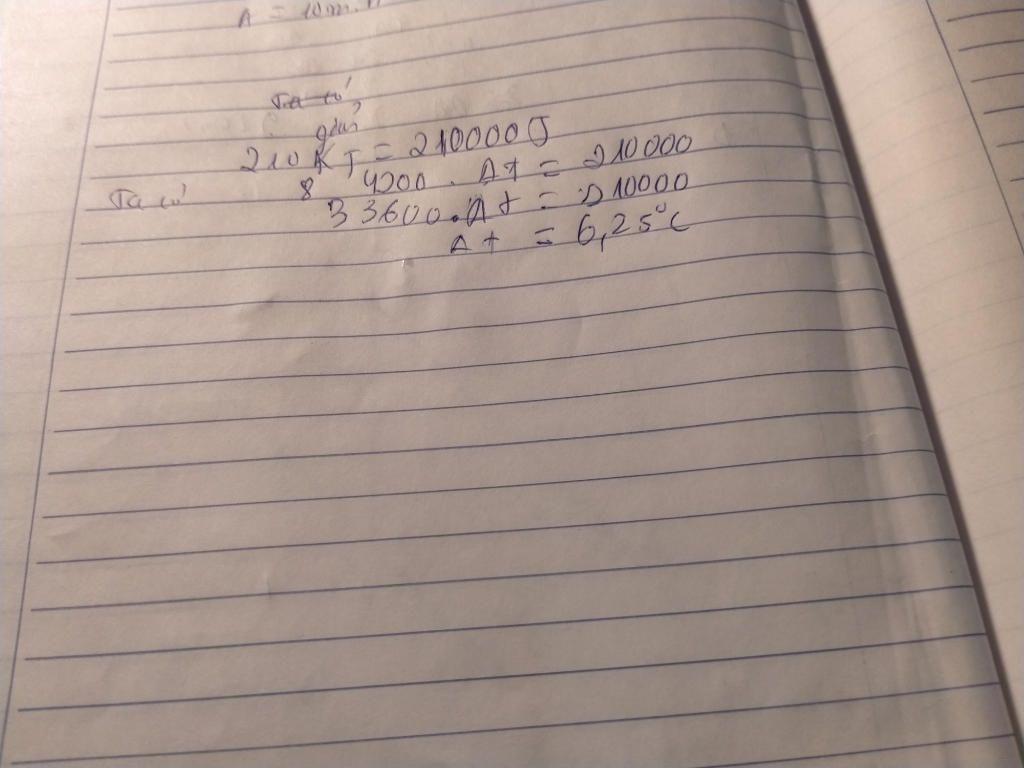 A = 10m.
Ta có
giải
210 KJ = 210000 J
8 4200 . Δt = 210000
Ta có 33600 . Δt = 210000
Δt = 6,25°C